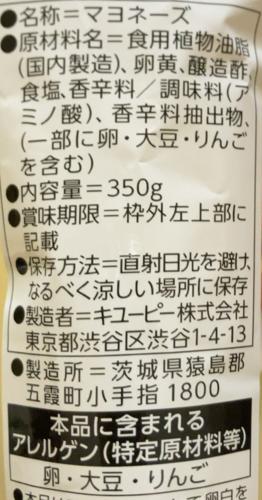 ●名称＝マヨネーズ
●原材料名＝食用植物油脂
(国内製造)、卵黄、醸造酢、
食塩、香辛料／調味料(ア
ミノ酸)、香辛料抽出物、
(一部に卵・大豆・りんご
を含む)
●内容量＝350g
●賞味期限＝枠外左上部に
記載
●保存方法＝直射日光を避け、
なるべく涼しい場所に保存
●製造者＝キユーピー株式会社
東京都渋谷区渋谷1-4-13
●製造所＝茨城県猿島郡
五霞町小手指1800
本品に含まれる
アレルゲン(特定原材料等)
卵・大豆・りんご